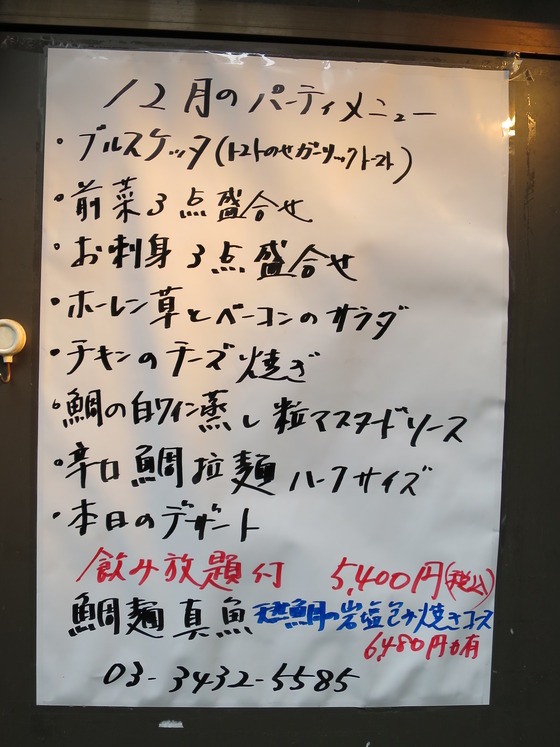 12月のパーティメニュー
・ブルスケッタ(トマトのせガーリックトースト)
・前菜3点盛合せ
・お刺身3点盛合せ
・ホーレン草とベーコンのサラダ
・チキンのチーズ焼き
・鯛の白ワイン蒸し粒マスタードソース
・辛口鯛拉麺ハーフサイズ
・本日のデザート
飲み放題付 5,400円(税込)
鯛麺真魚 天然鯛の岩塩包み焼きコース
6,480円も有
03-3432-5585